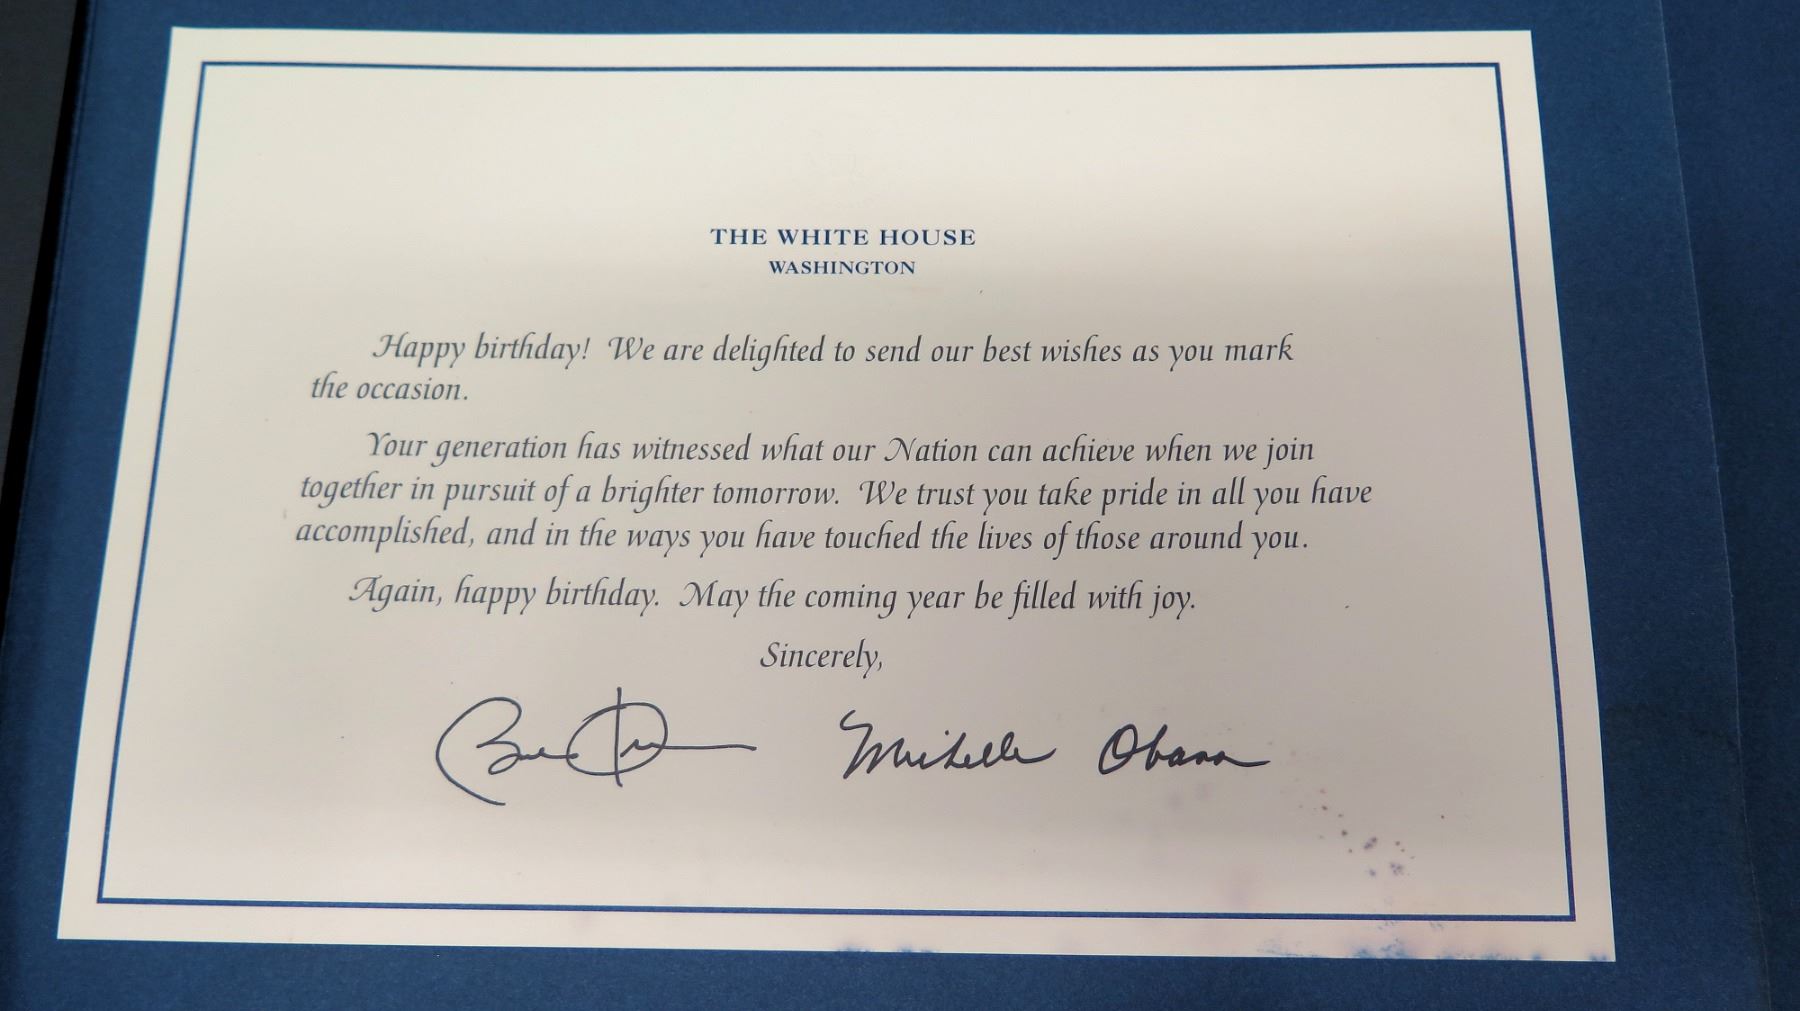 THE WHITE HOUSE
WASHINGTON
Happy birthday! We are delighted to send our best wishes as you mark
the occasion.
Your generation has witnessed what our Nation can achieve when we join
together in pursuit of a brighter tomorrow. We trust you take pride in all you have
accomplished, and in the ways you have touched the lives of those around you.
Again, happy birthday. May the coming year be filled with joy.
Sincerely,
Michelle Obama